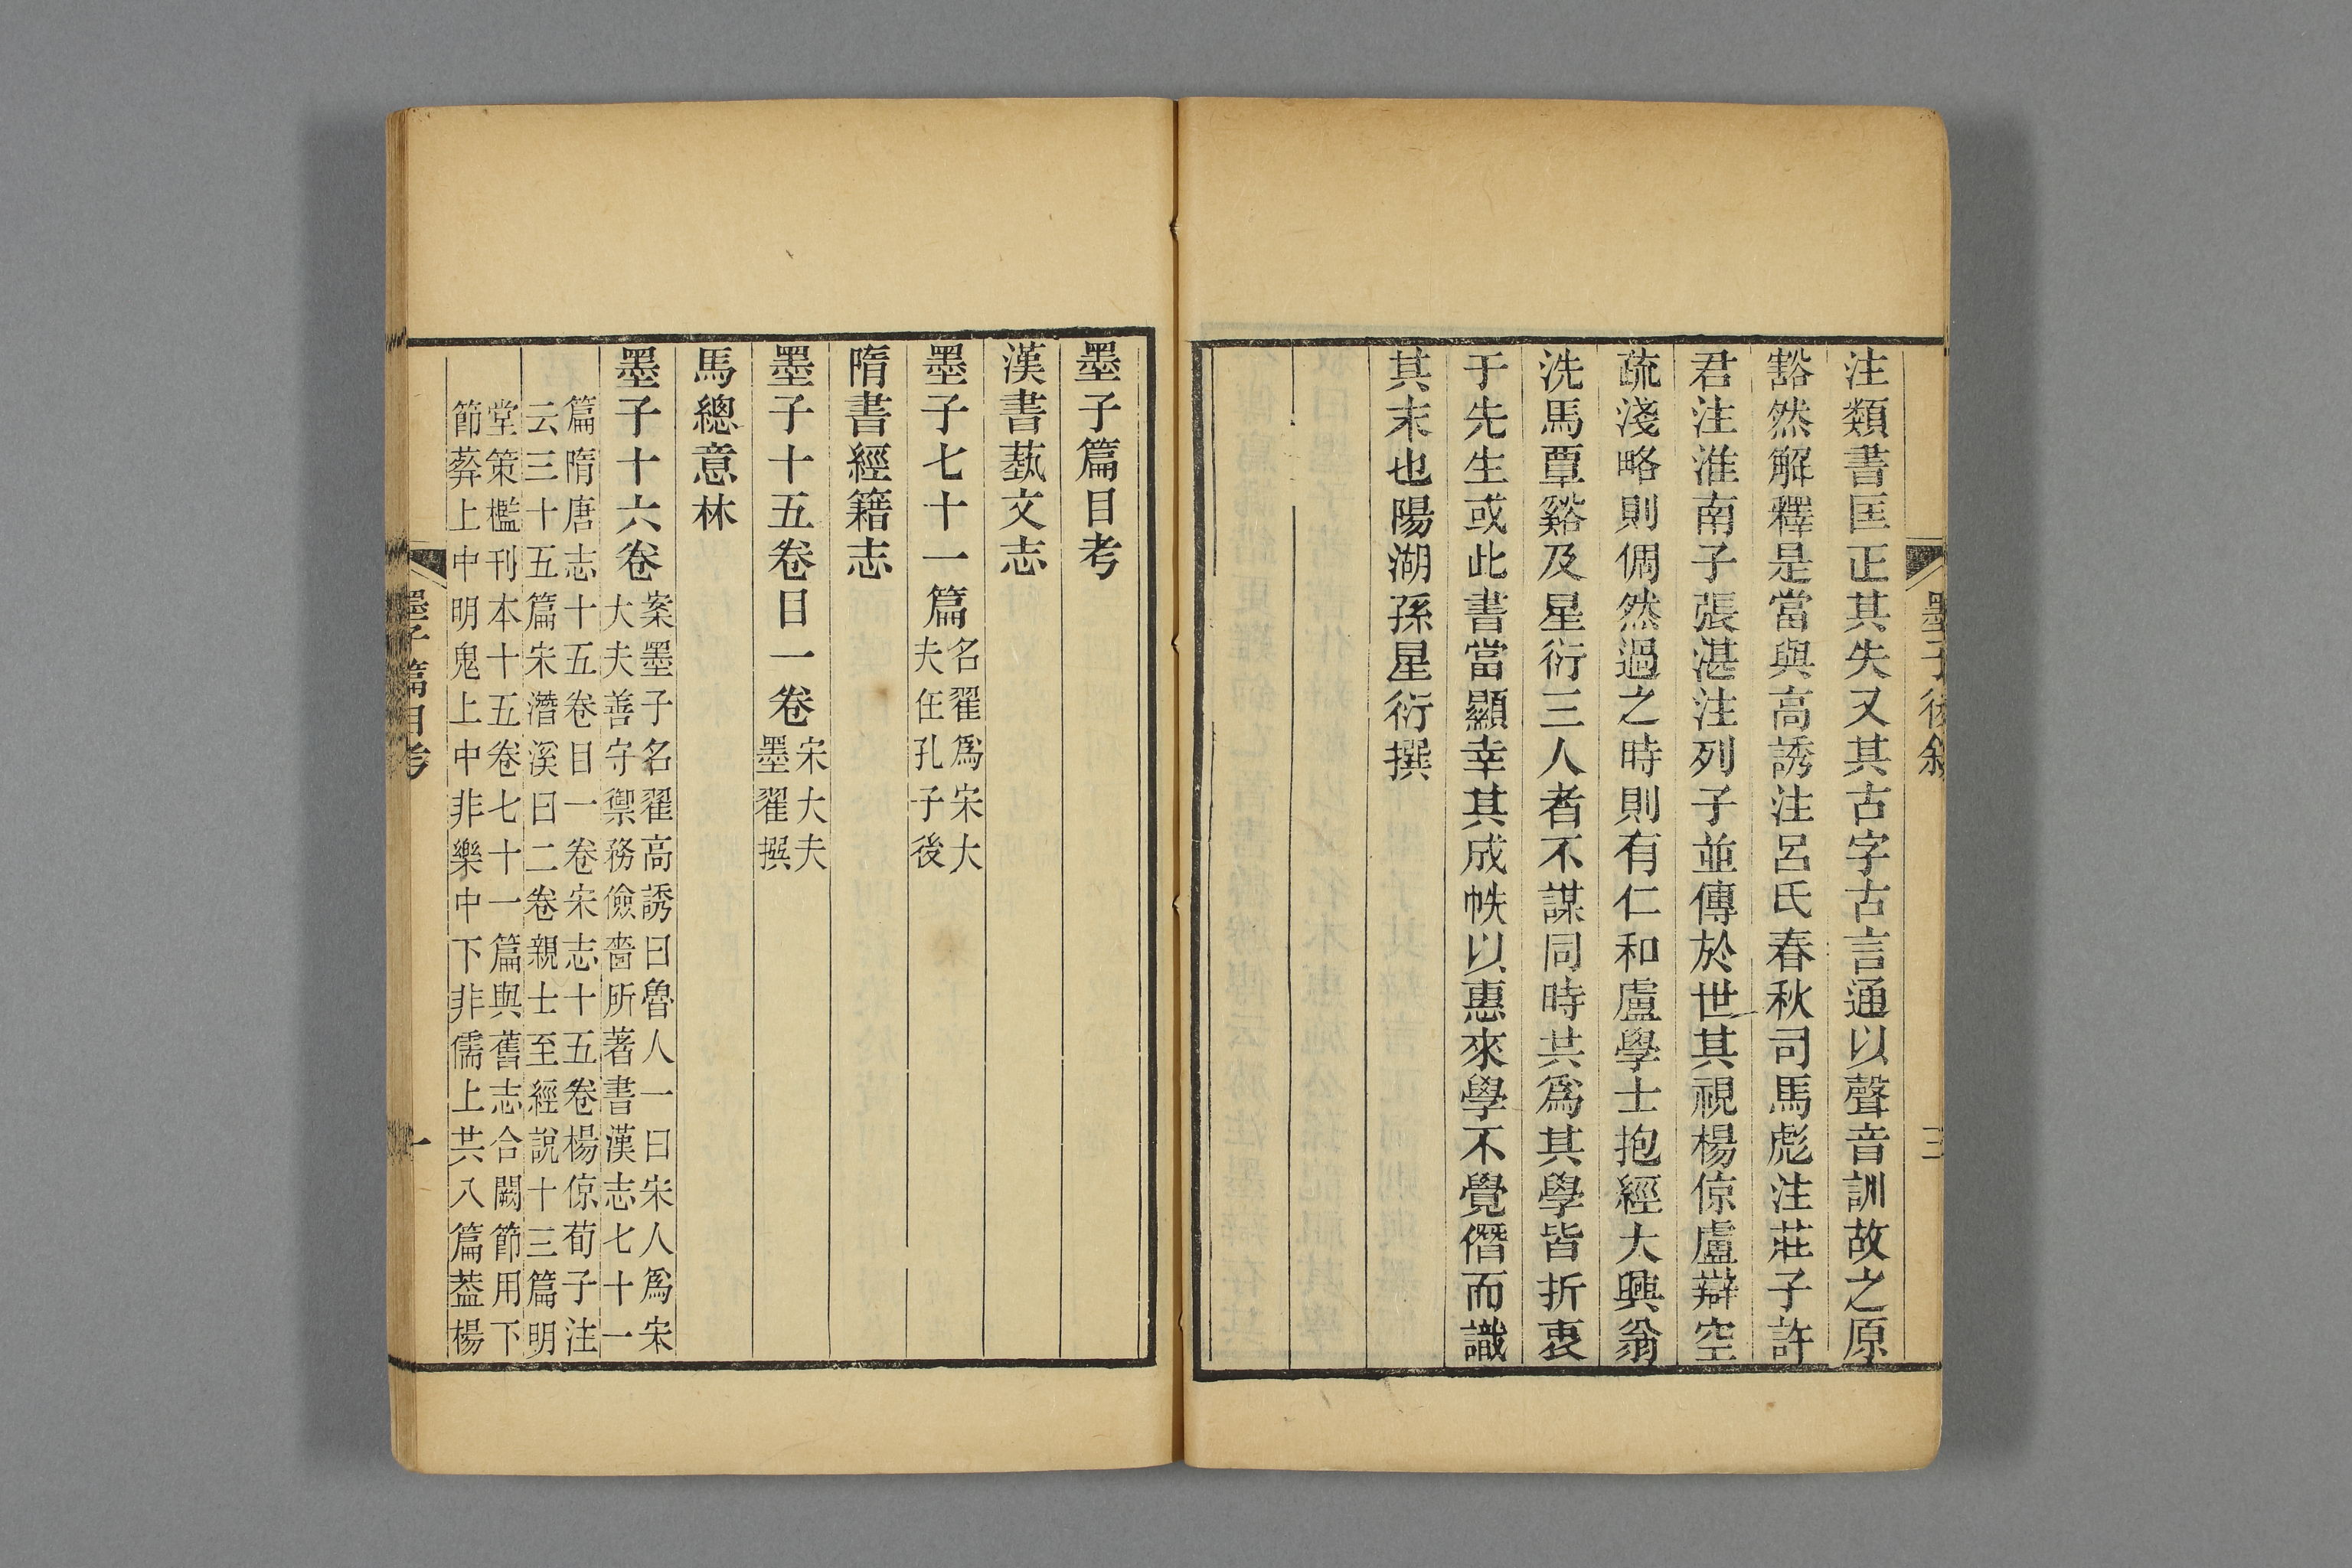 墨子後敘
三
注類書匡正其失又其古字古言通以聲音訓故之原
豁然解釋是當與高誘注呂氏春秋司馬彪注莊子許
君注淮南子張湛注列子並傳於世其視楊倞盧辯空
疏淺略則倜然過之時則有仁和盧學士抱經大興翁
洗馬覃谿及星衍三人者不謀同時共為其學皆折衷
于先生或此書當顯幸其成帙以惠來學不覺僭而識
其末也陽湖孫星衍撰
墨子篇目考
漢書蓺文志
墨子七十一篇
名翟爲宋大
夫在孔子後
隋書經籍志
墨子十五卷目一卷
宋大夫
墨翟撰
馬總意林
墨子十六卷
案墨子名翟高誘曰魯人一曰宋人爲宋
大夫善守禦務儉嗇所著書漢志七十一
篇隋唐志十五卷目一卷宋志十五卷楊倞荀子注
云三十五篇宋潛溪曰二卷親士至經說十三篇明
堂策檻刊本十五卷七十一篇與舊志合闕節用下
節葬上中明鬼上中非樂中下非儒上共八篇葢楊
墨子篇目考
一